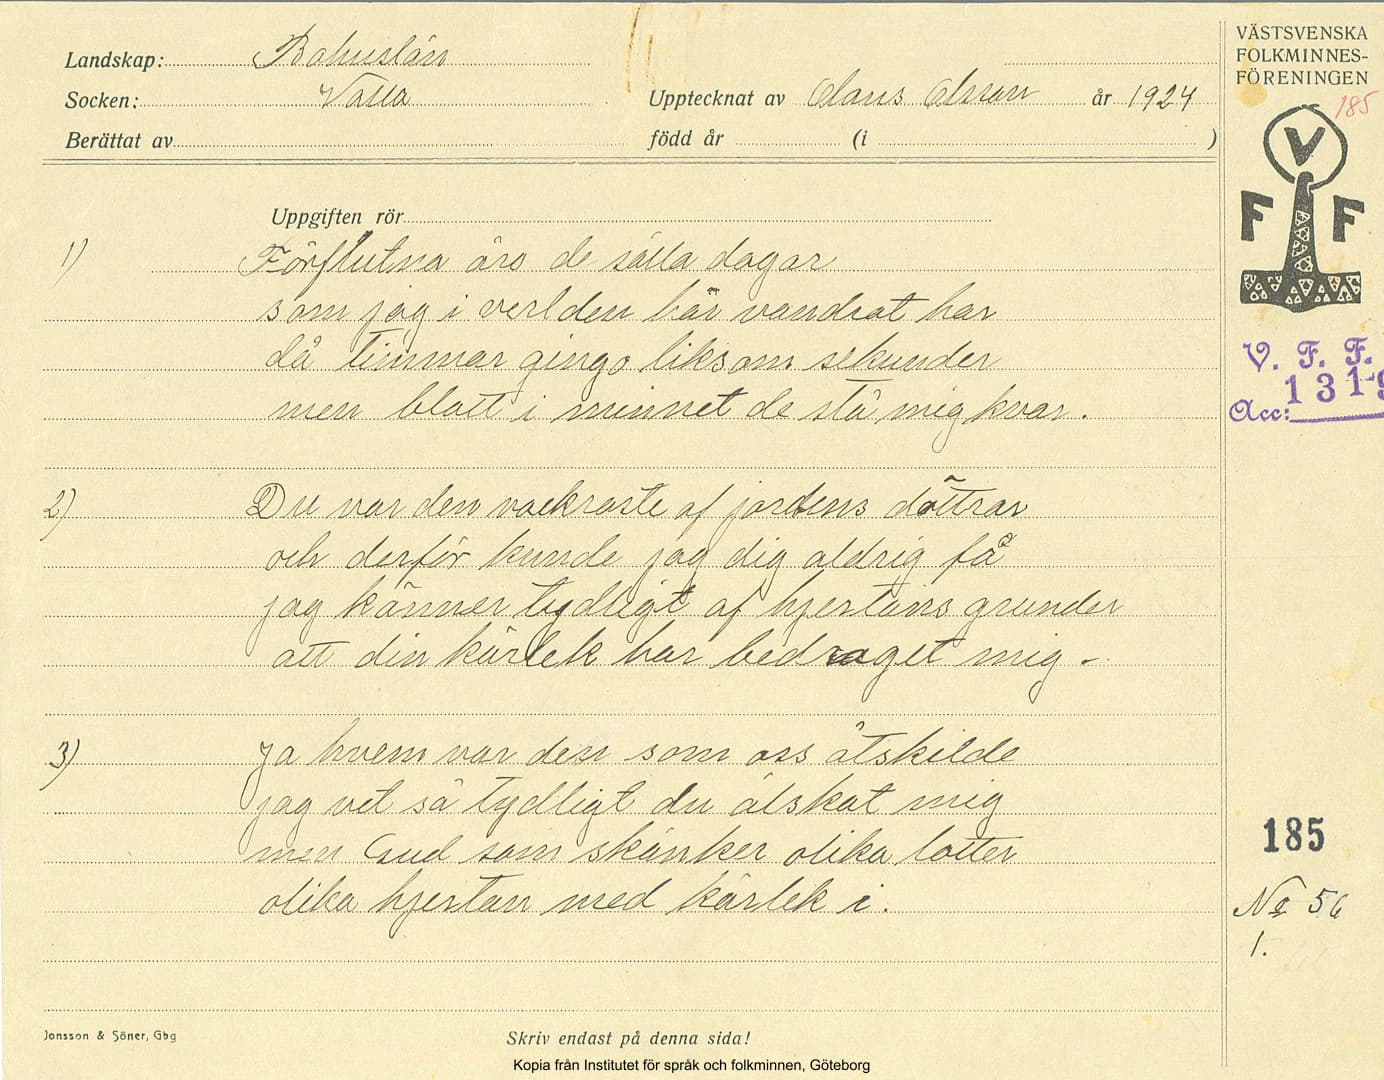 Landskap: Bohuslän
Socken: Valla
Upptecknat av Claus Olsson år 1924
Berättat av
född år (i )
VÄSTSVENSKA
FOLKMINNES-
FÖRENINGEN
185
V
F F
V. F. F.
1319
Acc:
Uppgiften rör
1) Förflutna äro de sälla dagar
som jag i verlden här vandrat har
då timmar gingo liksom sekunder
men blott i minnet de stå mig kvar.
2) Du var den vackraste af jordens döttrar
och derför kunde jag dig aldrig få
jag känner tydligt af hjertans grunder
att din kärlek har bedraget mig -
3) Ja hvem var den som oss åtskilde
jag vet så tydligt du älskat mig
men Gud som skänker olika lotter
olika hjertan med kärlek i.
185
No 56
1.
Jonsson & Söner, Gbg
Skriv endast på denna sida!
Kopia från Institutet för språk och folkminnen, Göteborg